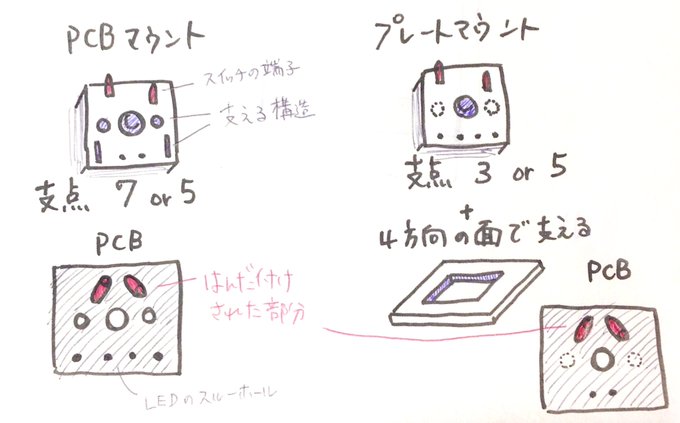 PCBマウント
スイッチの端子
支える構造
支点 7 or 5
PCB
はんだ付け
された部分
LEDのスルーホール
プレートマウント
支点 3 or 5
+
4方向の面で支える
PCB